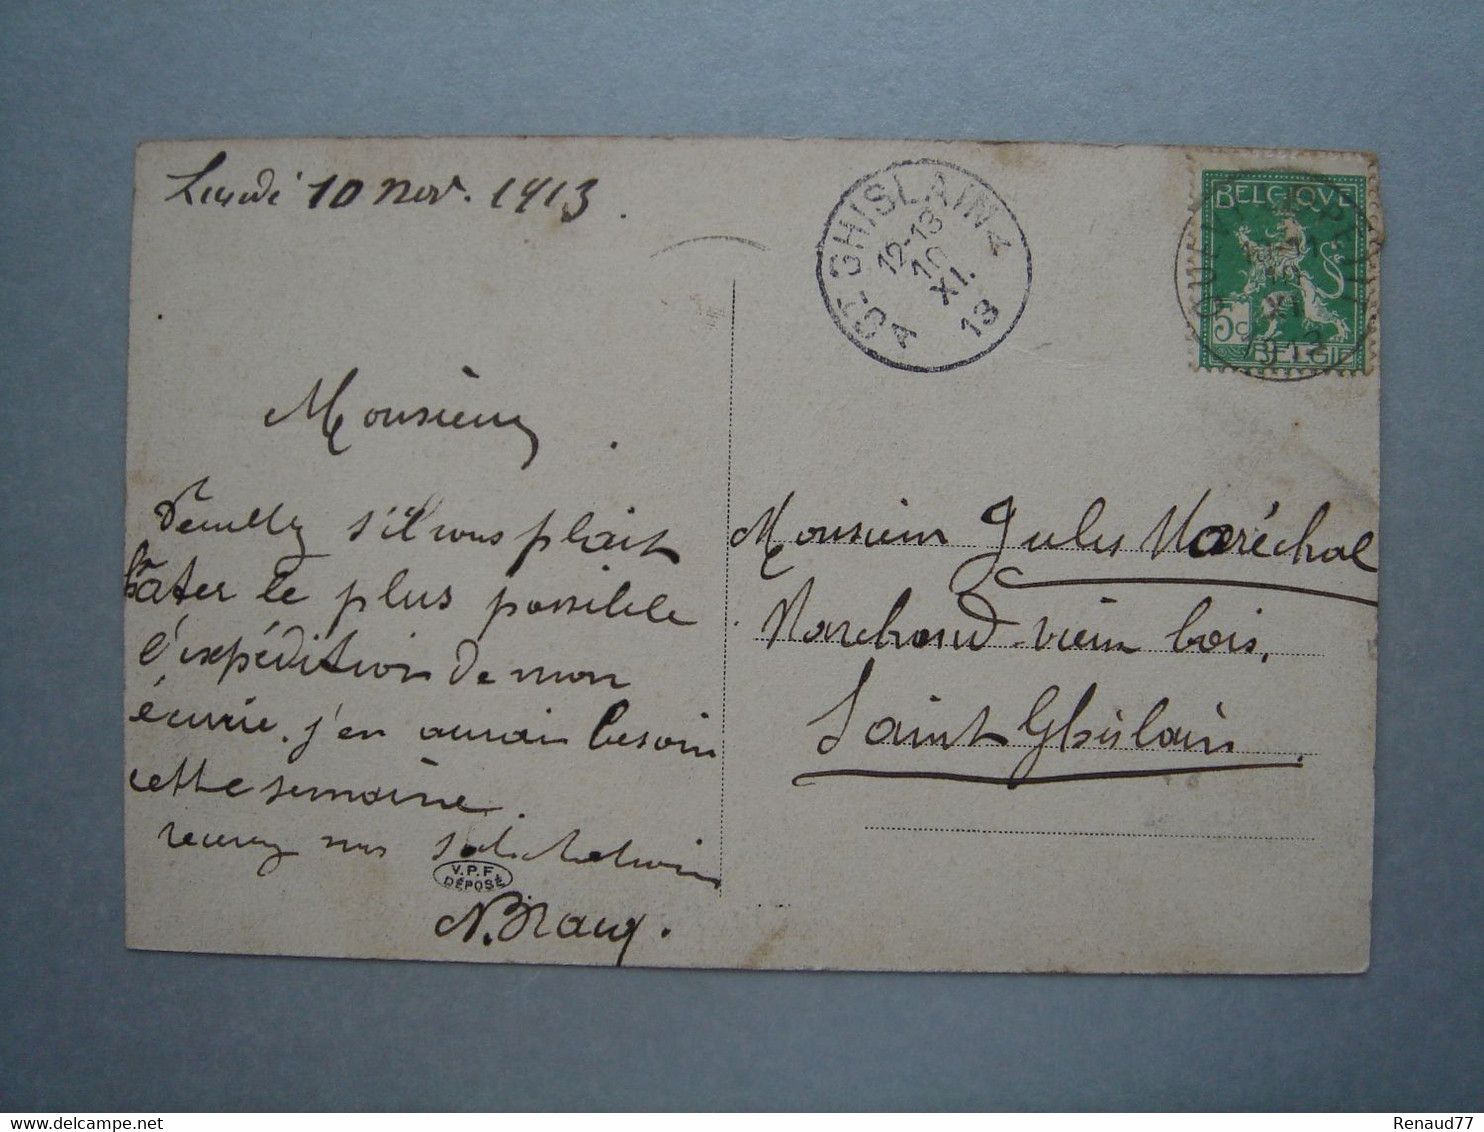 Lundi 10 nov. 1913.
Monsieur.
Veuillez s'il vous plait
hâter le plus possible
l'expédition de mon
écurie. j'en aurai besoin
cette semaine.
recevez mes
N. Bracq.
V.P.F.
DÉPOSÉ
ST-GHISLAIN
12-13
10
XI.
13
A
BELGIQUE
5c
BELGIË
10-11
10
XI
1913
Monsieur Jules Maréchal
Marchand vieux bois,
Saint Ghislain.
Renaud77